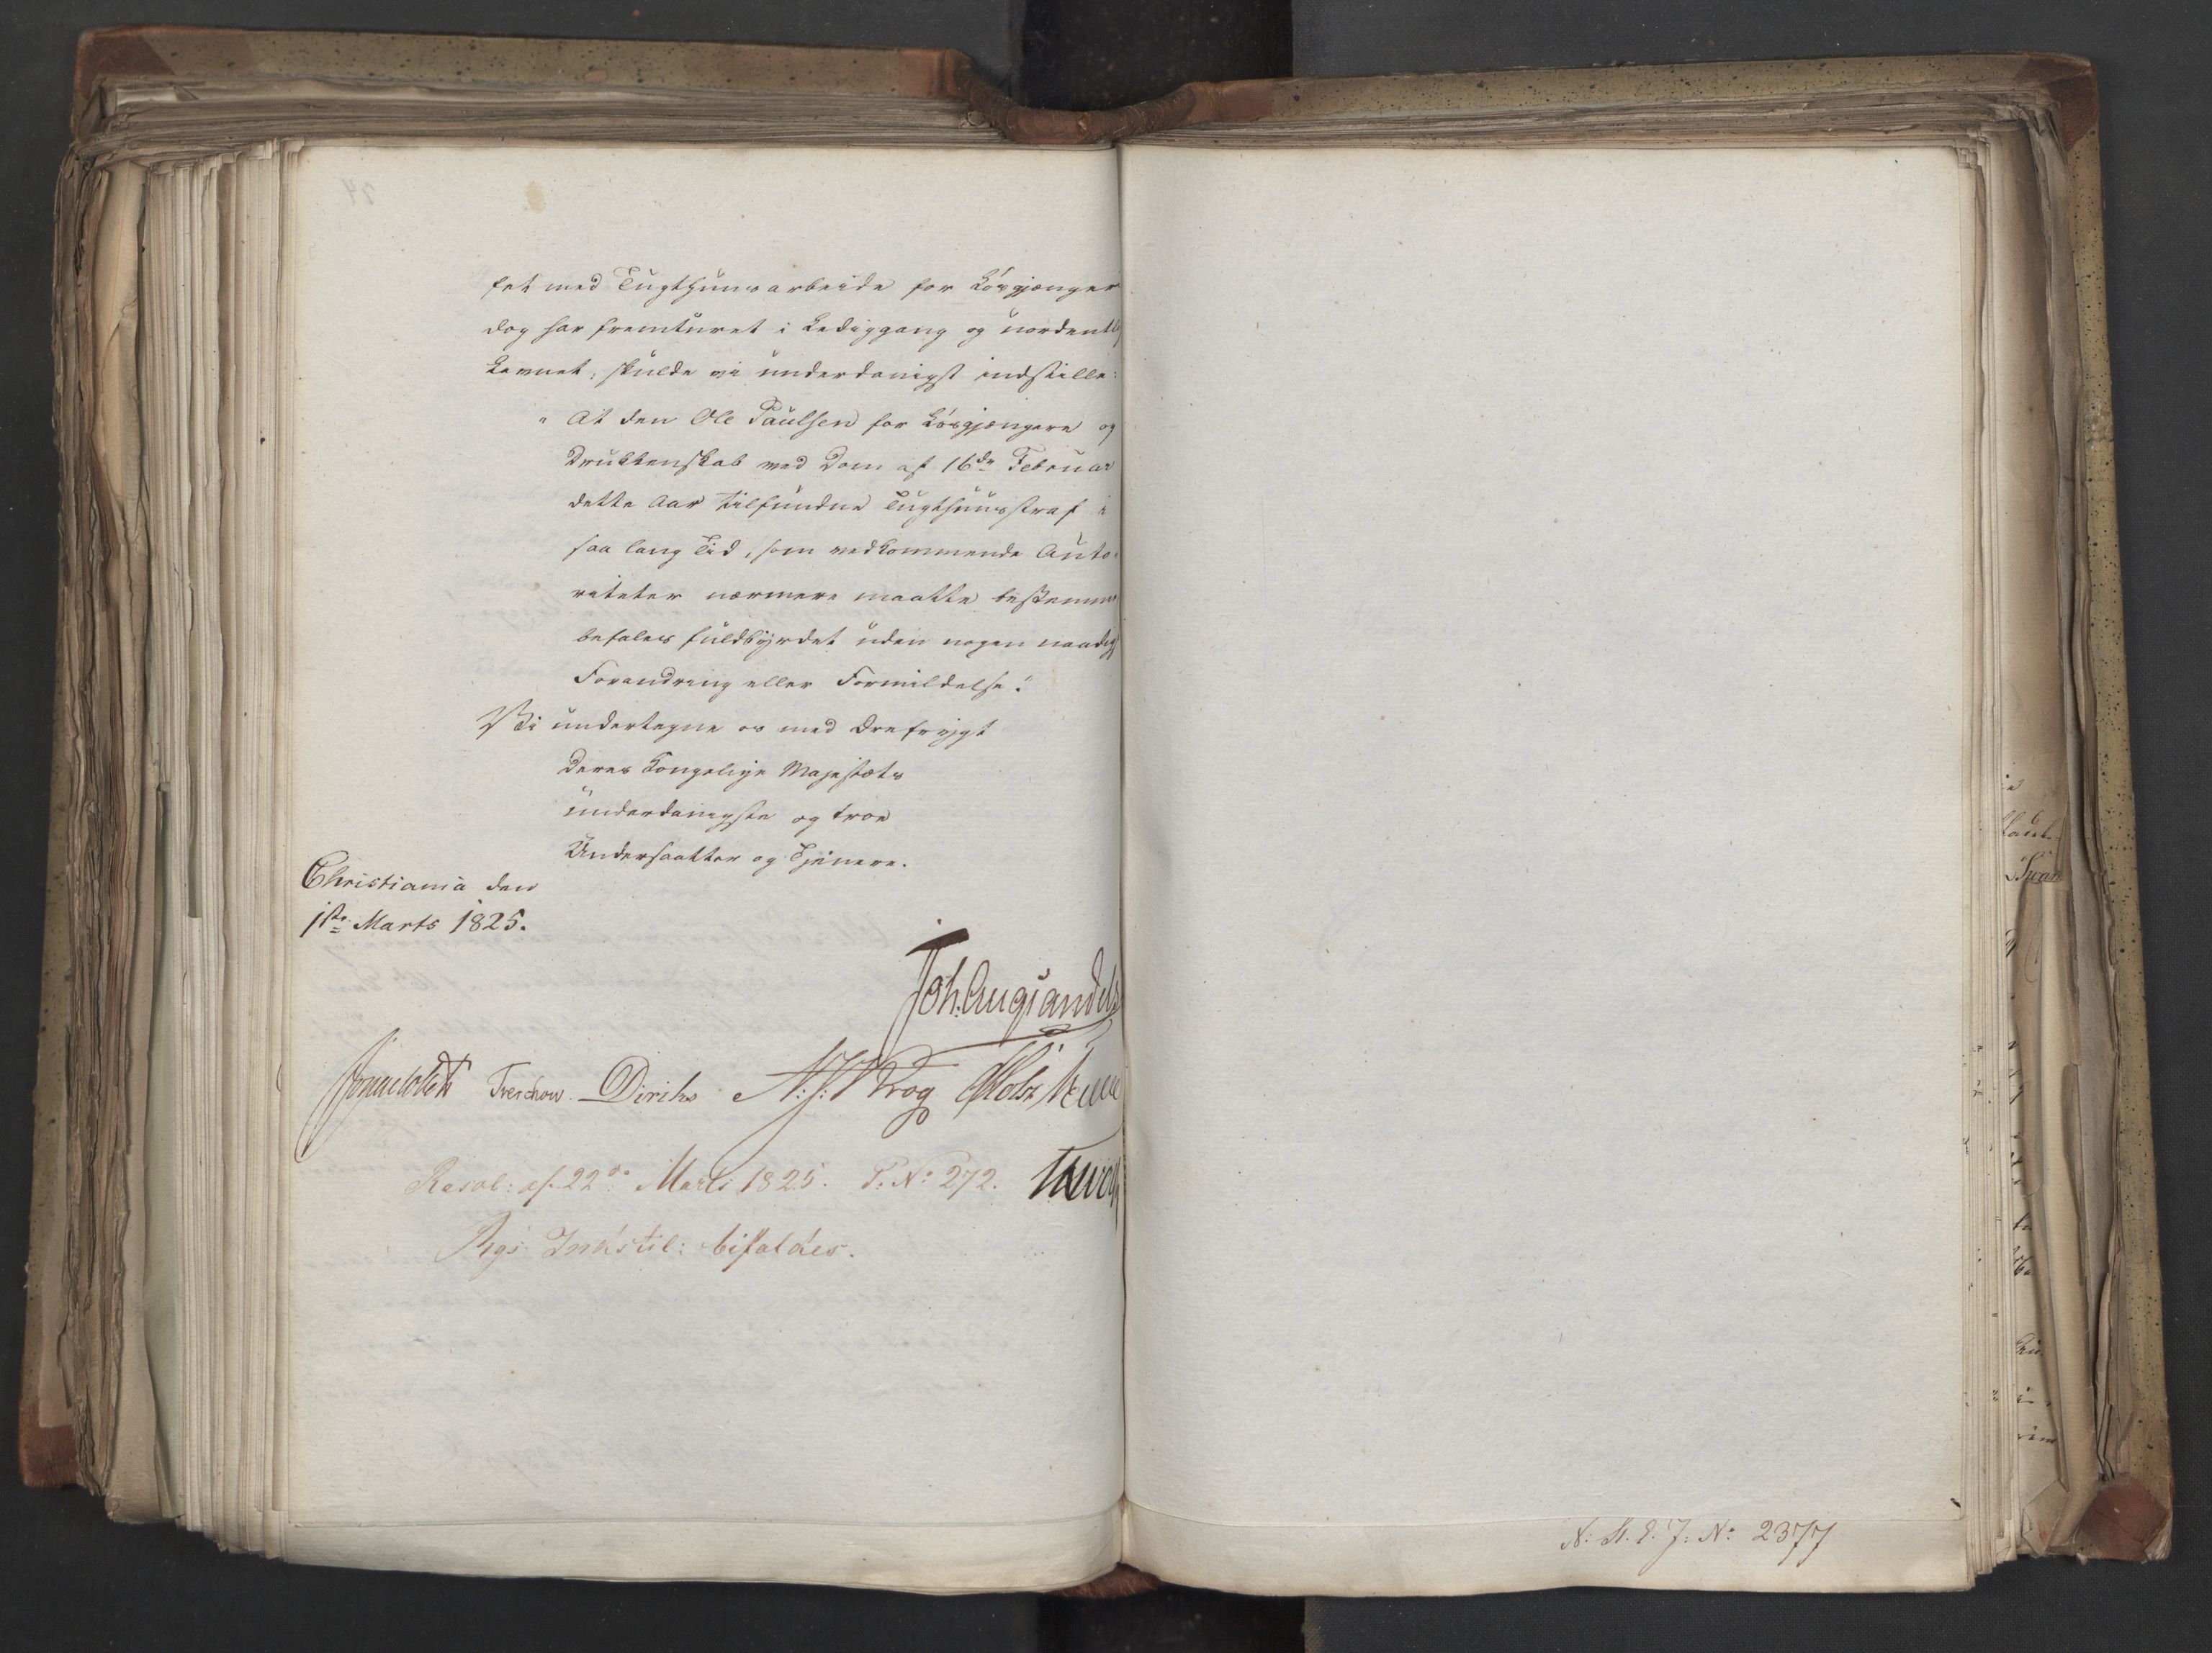 fet med Tugthuusarbeide for Løsgjænger
dog har fremturet i Lediggang og uordentlig
Levnet, skulde vi underdanigst indstille:
" At den Ole Paulsen for Løsgjængere og
Drukkenskab ved Dom af 16de Februar
dette Aar tilfundne Tugthuusstraf i
saa lang Tid, som vedkommende Auto-
riteter nærmere maatte bestemme
befales fuldbyrdet uden nogen naadig
Forandring eller Formildelse."
Vi undertegne os med Ærefrygt
Deres Kongelige Majestæts
underdanigste og troe
Undersaatter og Tjenere.
Christiania den
1ste Marts 1825.
Joh. Aug. Sandels
Treschow Diriks N: J: Krog Holst
Resol: af 22de Marts 1825. P. No 272.
Rgs Indstil: bifaldes.
No 2377